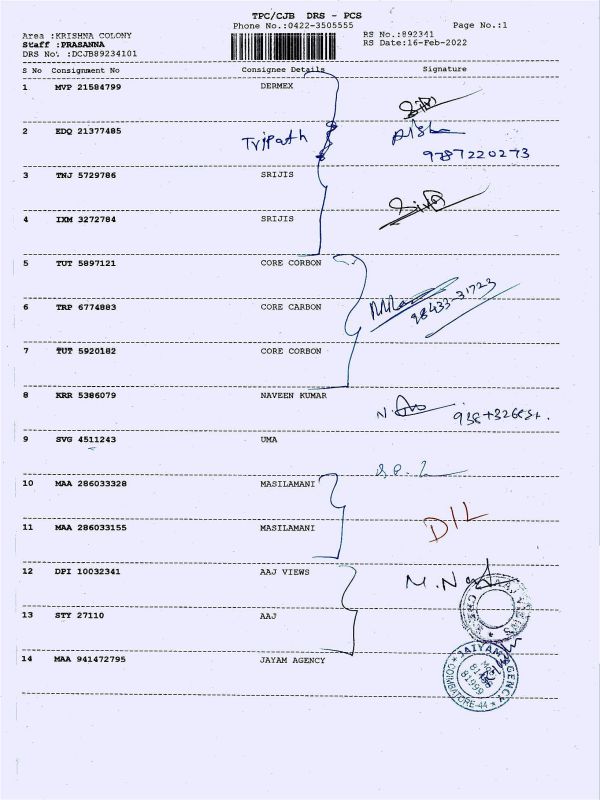 TPC/CJB DRS - PCS
Phone No.:0422-3505555
Page No.:1
Area :KRISHNA COLONY
Staff :PRASANNA
DRS No. :DCJB89234101
RS No.:892341
RS Date:16-Feb-2022
S No Consignment No Consignee Details Signature
1 MVP 21584799 DERMEX
2 EDQ 21377485 Tripath
9787220273
3 TNJ 5729786 SRIJIS
4 IXM 3272784 SRIJIS
5 TUT 5897121 CORE CORBON
6 TRP 6774883 CORE CARBON 98433-31723
7 TUT 5920182 CORE CORBON
8 KRR 5386079 NAVEEN KUMAR
9 SVG 4511243 UMA
10 MAA 286033328 MASILAMANI
11 MAA 286033155 MASILAMANI
DIL
12 DPI 10032341 AAJ VIEWS
13 STY 27110 AAJ
AAJ VIEWS
14 MAA 941472795 JAYAM AGENCY
JAIYAM AGENCY
COIMBATORE-44